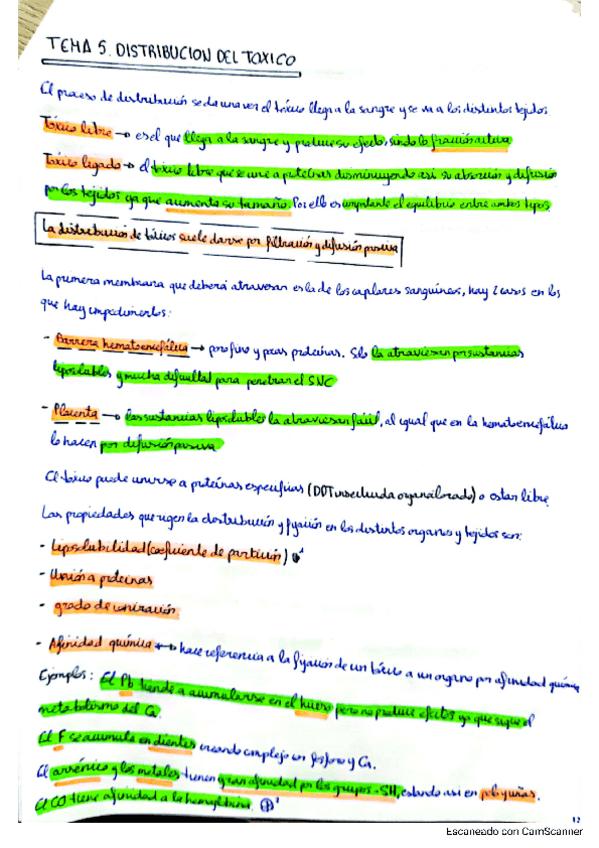 TEMA 5. DISTRIBUCION DEL TOXICO
El proceso de distribución se da una vez el tóxico llega a la sangre y se va a los distintos tejidos
Tóxico libre → es el que llega a la sangre y produce su efecto, siendo la fracción activa
Tóxico ligado → el tóxico libre que se une a proteínas disminuyendo así su absorción y difusión
por los tejidos ya que aumenta su tamaño. Por ello es importante el equilibrio entre ambos tipos.
La distribución de tóxicos suele darse por filtración y difusión pasiva
La primera membrana que deberá atravesar es la de los capilares sanguíneos, hay 2 casos en los
que hay impedimentos:
- Barrera hematoencefálica → poro fino y pocas proteínas. Sólo la atraviesan sustancias
liposolubles y mucha dificultad para penetrar el SNC
- Placenta → las sustancias liposolubles la atraviesan fácil, al igual que en la hematoencefálica
lo hacen por difusión pasiva
El tóxico puede unirse a proteínas específicas (DDT insecticida organoclorado) o estar libre
Las propiedades que rigen la distribución y fijación en los distintos organos y tejidos son:
- Liposolubilidad (coeficiente de partición)
- Unión a proteínas
- grado de ionización
- Afinidad química → hace referencia a la fijación de un tóxico a un organo por afinidad química
Ejemplos: El Pb tiende a acumularse en el hueso pero no produce efectos ya que sigue el
metabolismo del Ca.
El F se acumula en dientes creando complejo con fosforo y Ca.
El arsénico y los metales tienen gran afinidad por los grupos -SH, estando así en pelo y uñas.
El CO tiene afinidad a la hemoglobina.
12
Escaneado con CamScanner